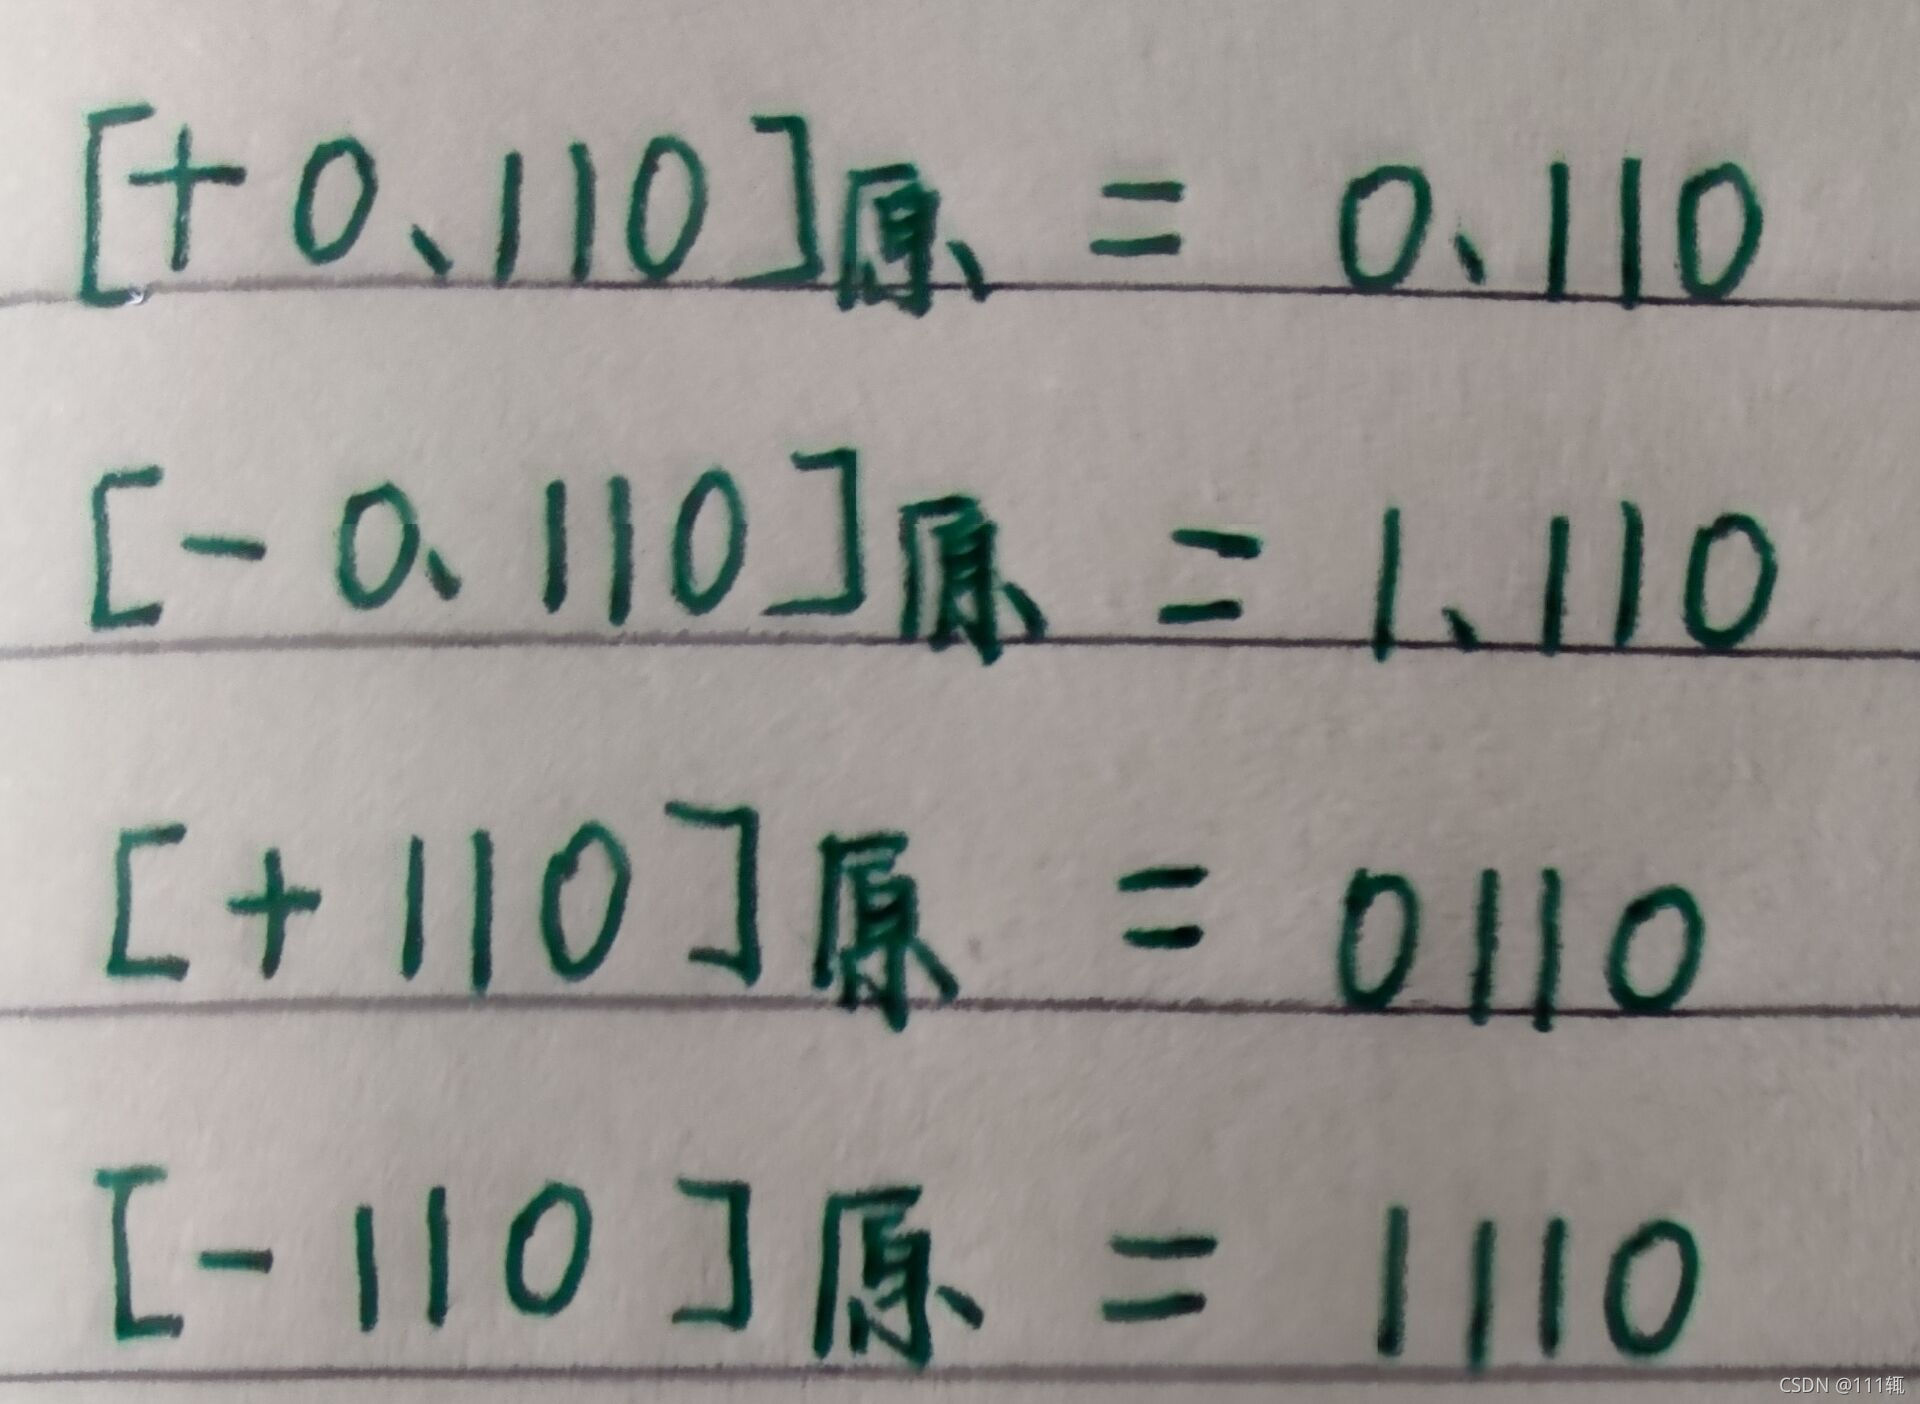 [+0、110]原 = 0、110
[-0、110]原 = 1、110
[+110]原 = 0110
[-110]原 = 1110
CSDN @111辄